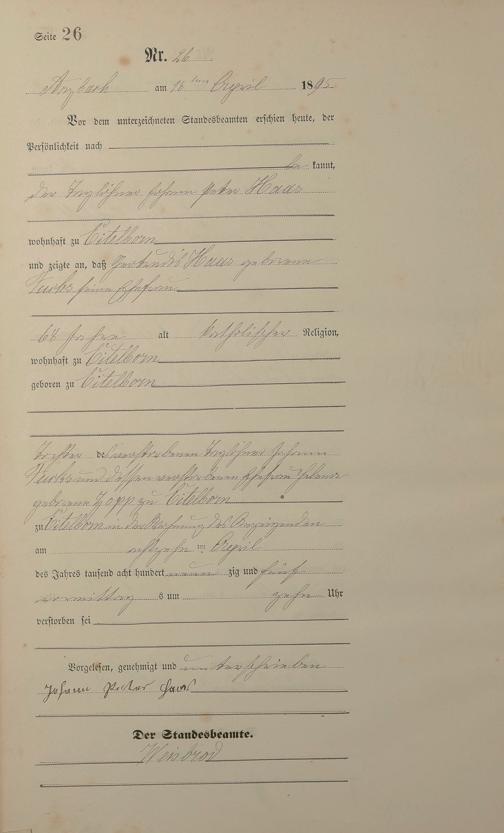 Seite 26
Nr. 26
Arzbach am 18ten April 1895
Vor dem unterzeichneten Standesbeamten erschien heute, der
Persönlichkeit nach
be kannt,
der Taglöhner Johann Peter Haas
wohnhaft zu Eitelborn
und zeigte an, daß Haas geborene
Fuchs seine Ehefrau
68 Jahre alt katholischer Religion,
wohnhaft zu Eitelborn
geboren zu Eitelborn
Tochter des verstorbenen Taglöhner Johann
Fuchs und dessen verstorbenen Ehefrau
geborene Zapp zu Eitelborn
zu Eitelborn in der Wohnung des Anzeigenden
am April
des Jahres tausend acht hundert neun zig und fünf
vormittag s um zehn Uhr
verstorben sei
Vorgelesen, genehmigt und unterschrieben
Johann Peter Haas
Der Standesbeamte.
Weisbrod